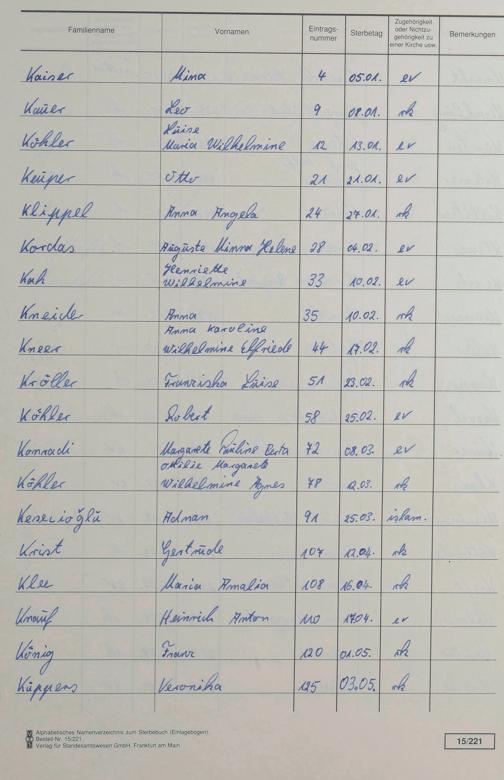 Familienname Vornamen Eintrags-nummer Sterbetag Zugehörigkeit oder Nichtzu-gehörigkeit zu einer Kirche usw. Bemerkungen
Kaiser Mina 4 05.01. ev
Kauer Leo 9 08.01. rk
Luise
Köhler Maria Wilhelmine 12 13.01. ev
Keuper Otto 21 21.01. ev
Klippel Anna Angela 24 27.01. rk
Kordas Auguste Minna Helene 28 04.02. ev
Henriette
Wilhelmine 33 10.02. ev
Kneider Anna 35 10.02. rk
Anna Karoline
Kneer Wilhelmine Elfriede 44 17.02. rk
Kröller Franziska Luise 51 23.02. rk
Köhler Robert 58 25.02. ev
Konradi Margarete Pauline Berta 72 08.03. ev
Ottilie Margarete
Köhler Wilhelmine Agnes 78 12.03. rk
Kesecioğlu Adnan 91 25.03. islam.
Krist Gertrude 107 12.04. rk
Klee Maria Amalia 108 16.04. rk
Knauf Heinrich Anton 110 17.04. ev
König Franz 120 01.05. rk
Küppers Veronika 125 03.05. rk
Alphabetisches Namenverzeichnis zum Sterbebuch (Einlagebogen)
Bestell-Nr. 15/221
Verlag für Standesamtswesen GmbH, Frankfurt am Main
15/221